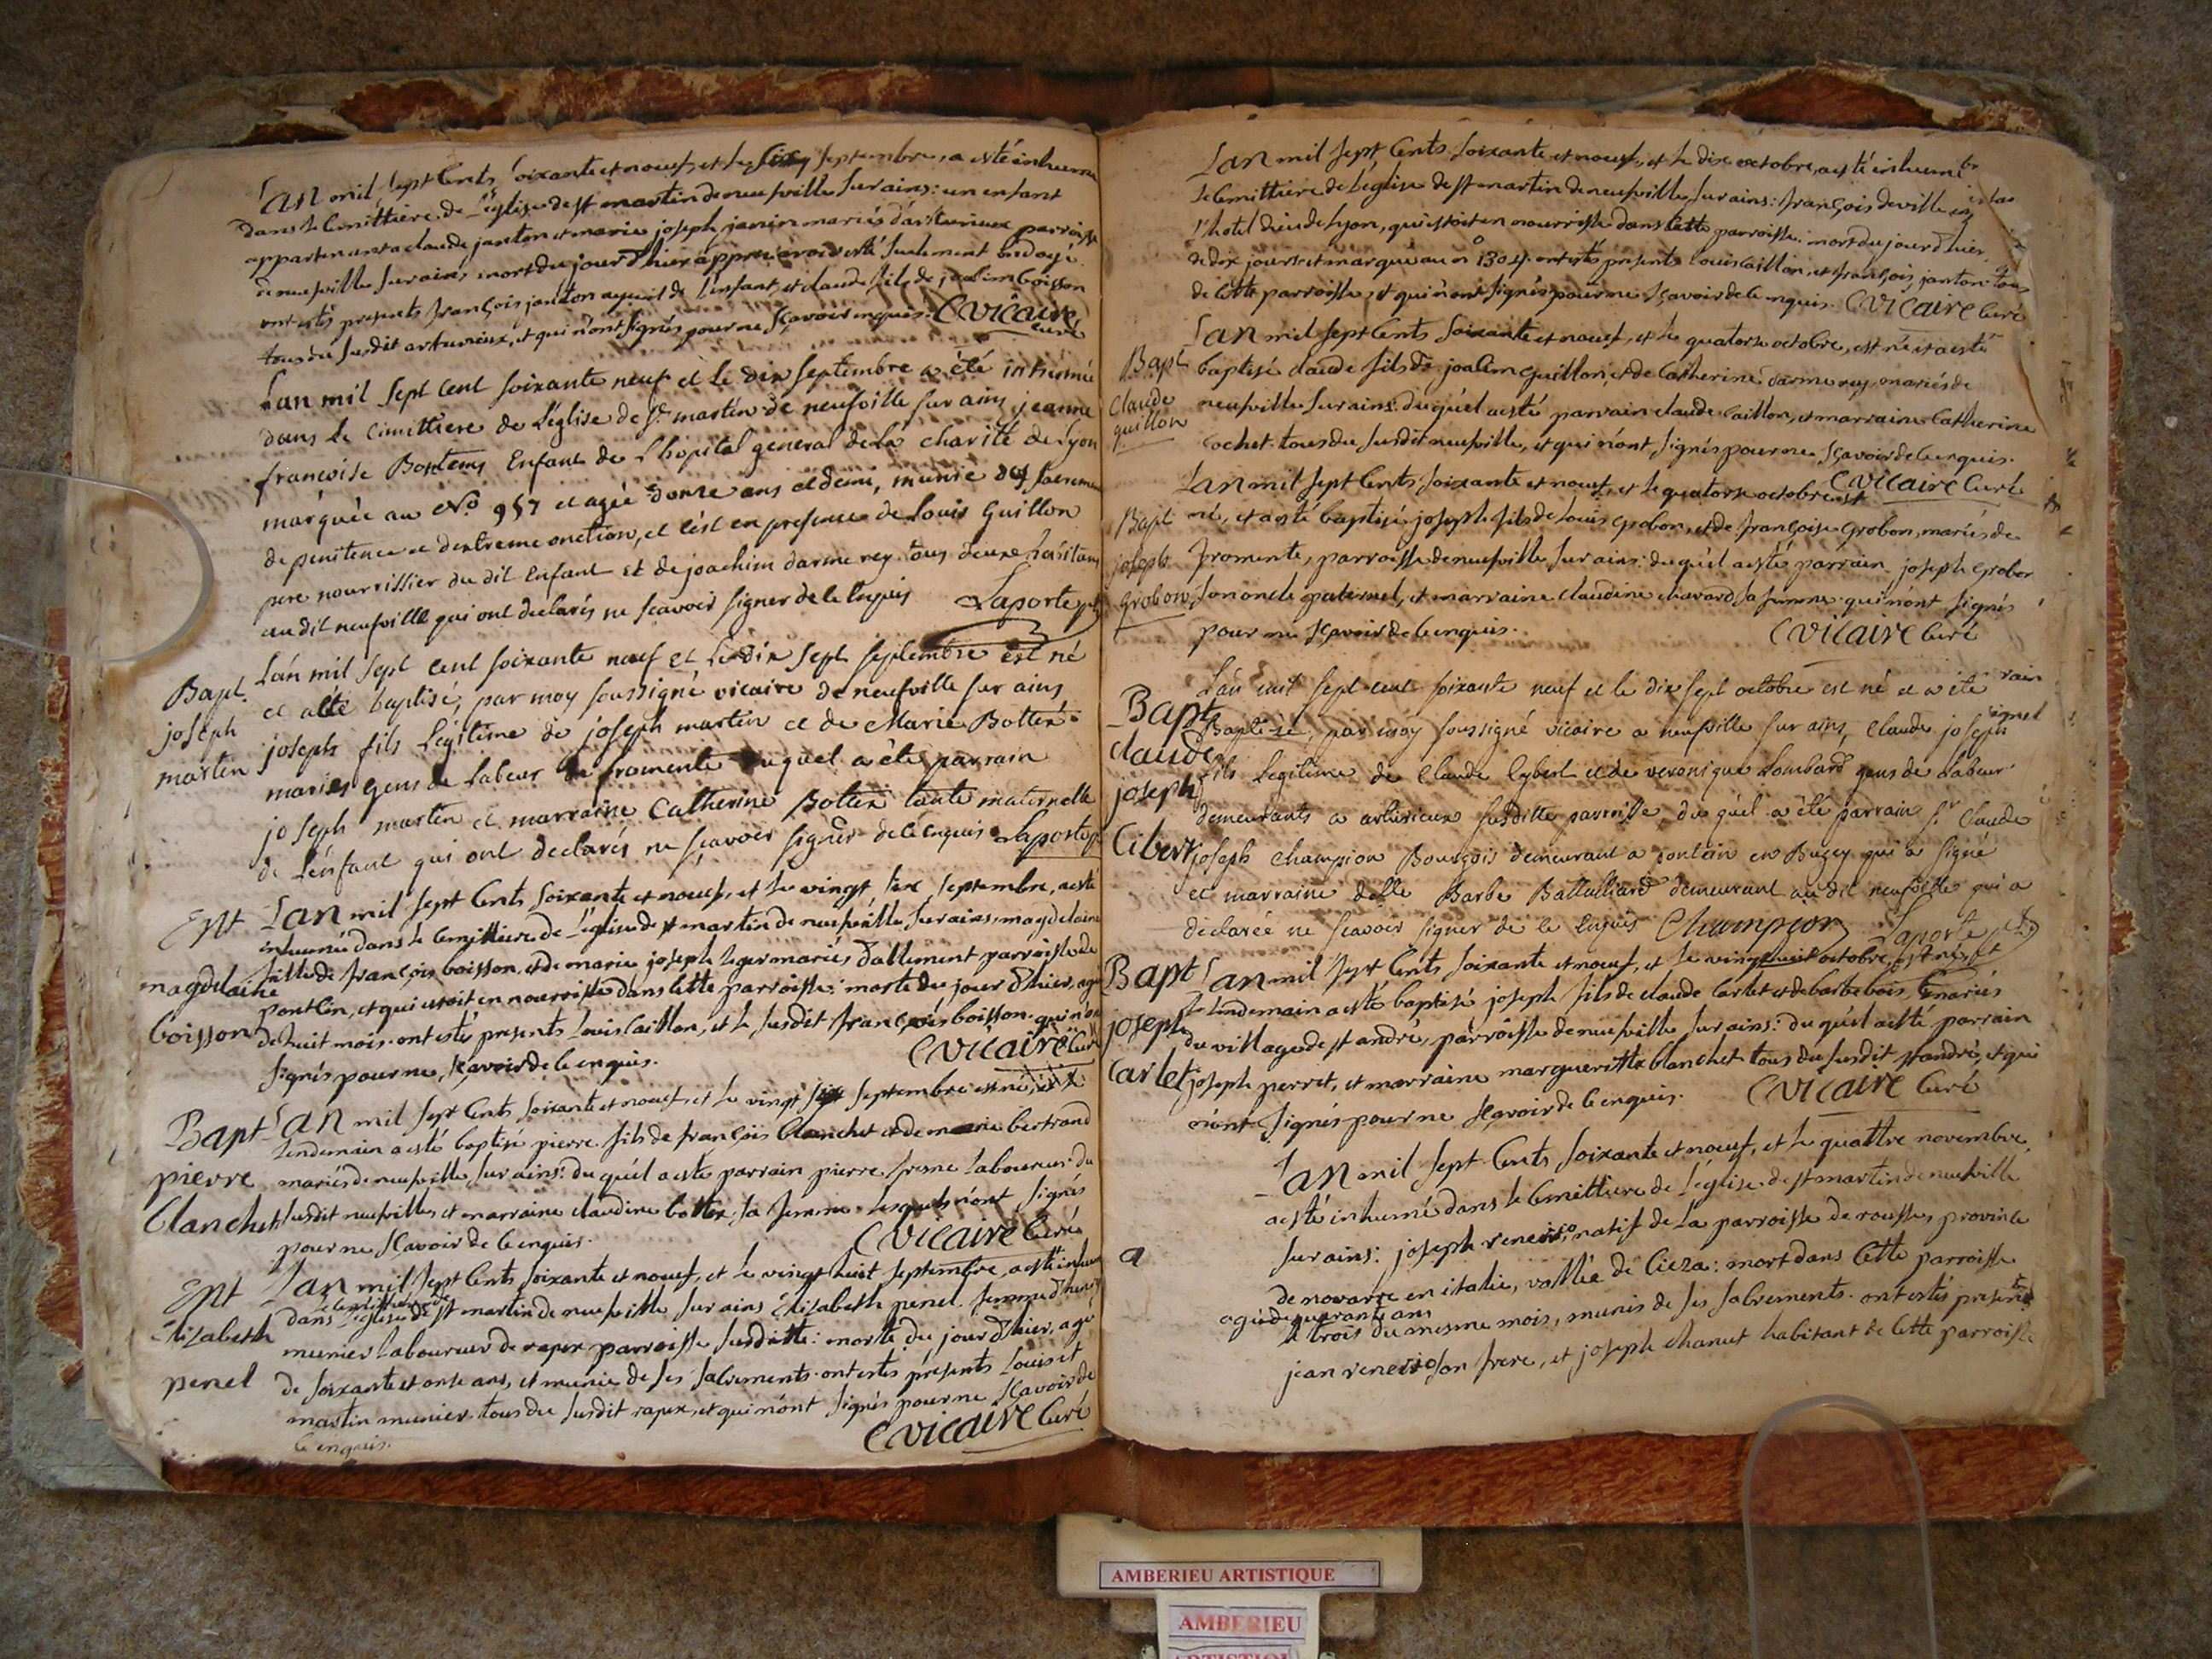 Lan mil sept Cents soixante et noeuf, et le six septembre, a esté inhumé
dans le Cemittiere de L'église de st martin de neufville sur ains: un enfant
appartenant a claude janton et marie joseph janin mariés d'arturieux parroisse
de neufville sur ains, mort du jour d'hier appres avoir esté seulement ondoyé.
ont estés presents françois janton ayeul de l'enfant, et claude fils de joalim boisson
tous du susdit arturieux, et qui n'ont signés pour ne sçavoir enquis. C Vicaire
curé
Lan mil sept cent soixante neuf et le dix septembre a été inhumée
dans le cimittiere de L'église de St martin de neufville sur ains jeanne
françoise Bontems Enfant de l'hopital general de la charité de Lyon
marquée au No 957 et agée donze ans et demi, munie des sacremens
de penitence et d'extreme onction, et c'est en presence de Louis Guillon
pere nourrissier du dit Enfant et de joachim darmerey tous deux habitans
au dit neufville qui ont declarés ne scavoir signer de ce Enquis Laporte
Bapt. Lan mil sept cent soixante neuf et le dix sept septembre est né
et a été baptisé, par moy soussigné vicaire de neufville sur ains
joseph joseph fils Légitime de joseph martin et de Marie Bottex
martin mariés gens de Labeur de fromente duquel a été parrain
joseph martin et marraine Catherine Bottex tante maternelle
de l'enfant qui ont declarés ne sçavoir signer de ce enquis Laporte
Ent Lan mil sept Cents soixante et noeuf, et le vingt six septembre, a esté
inhumée dans le Cemittiere de L'église de st martin de neufville sur ains, magdelaine
magdelaine fille de françois boisson, et de marie joseph leger mariés d'allement parroisse de
boisson pontlin, et qui estoit en nourrisse dans Cette parroisse: morte du jour d'hier, agé
de huit mois. ont estés presents Louis Caillon, et le susdit françois boisson. qui n'ont
signés pour ne sçavoir de ce enquis. C Vicaire Curé
Bapt Lan mil sept Cents soixante et noeuf, et le vingt sept septembre est né, et le
lendemain a esté baptisé pierre fils de françois blanchet et de marie bertrand
pierre mariés de neufville sur ains: du quel a esté parrain pierre fresne Laboureur du
blanchet susdit neufville, et marraine claudine bottex, sa femme. Lesquels n'ont signés
pour ne sçavoir de ce enquis. C Vicaire Curé
Ent Lan mil sept Cents soixante et noeuf, et le vingt huit septembre, a esté inhumé
le Cemittiere de
dans L'église de st martin de neufville sur ains Elisabeth penel femme d'
Elisabeth munier Laboureur de rapex parroisse susditte: morte du jour d'hier, agé
penel de soixante et onse ans, et munie de ses sacrements. ont estés présents Louis et
martin munier tous du susdit rapex, et qui n'ont signés pour ne sçavoir de
ce enquis. C Vicaire Curé
Lan mil sept Cents soixante et noeuf, et le dix octobre, a esté inhumé
le Cemittiere de L'église de st martin de neufville sur ains: françois deville
l'hotel dieu de Lyon, qui estoit en nourrisse dans Cette parroisse. mort du jour d'hier,
de dix jours et marqué au no 1304. ont estés presents Louis Caillon, et françois janton tous
de Cette parroisse, et qui n'ont signés pour ne sçavoir de ce enquis. C Vicaire Curé
Bapt Lan mil sept Cents soixante et noeuf, et le quatorse octobre, est né et a esté
baptisé claude fils de joalim guillon, et de Catherine darmerey mariés de
Claude neufville sur ains: du quel a esté parrain claude Caillon, et marraine Catherine
guillon Cochet. tous du susdit neufville, et qui n'ont signés pour ne sçavoir de ce enquis.
C Vicaire Curé
Lan mil sept Cents soixante et noeuf, et le quatorse octobre est
Bapt né, et a esté baptisé joseph fils de Louis Grobon, et de françoise Grobon, mariés de
joseph fromente, parroisse de neufville sur ains: du quel a esté parrain joseph Grobon
Grobon son oncle paternel, et marraine claudine chavard, sa femme. qui n'ont signés
pour ne sçavoir de ce enquis. C Vicaire Curé
Lan mil sept cent soixante neuf et le dix sept octobre est né et a été
Bapt Baptisé, par moy soussigné vicaire a neufville sur ains, Claude joseph
claude fils Legitime de Claude Cybert et de veronique Lombard gens de Labeur
joseph demeurants a arturieux susditte parroisse, du quel a été parrain sr Claude
Cibert joseph Champion Bourgois demeurant a pontein en Bugey qui a signé
et marraine delle Barbe Battalliard demeurant au dit neufville qui a
declarée ne scavoir signer de ce Enquis Champion Laporte
Bapt Lan mil sept Cents soixante et noeuf, et le vingt huit octobre, est né, et
le lendemain a esté baptisé joseph fils de claude Carlet et de barbe bois, mariés
joseph du village de st andré, parroisse de neufville sur ains: du quel a esté parrain
Carlet joseph perret, et marraine margueritte blanchet tous du susdit st andré, et qui
n'ont signés pour ne sçavoir de ce enquis. C Vicaire Curé
Lan mil sept Cents soixante et noeuf, et le quattre novembre
a esté inhumé dans le Cemittiere de L'église de st martin de neufville
a sur ains: joseph renerio, natif de La parroisse de rousse, province
de novarre en italie, vallée de Cieza: mort dans Cette parroisse
agé de quarante ans
le trois du mesme mois, munis de ses sacrements. ont estés presents
jean renerio son frere, et joseph chanut habitant de Cette parroisse
AMBERIEU ARTISTIQUE
AMBERIEU
ARTISTIQUE